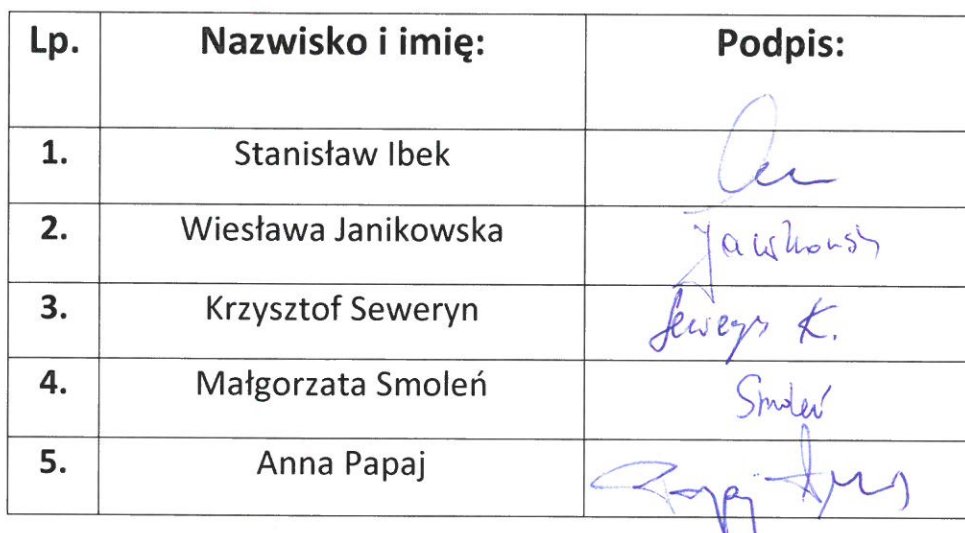 Lp. Nazwisko i imię: Podpis:
1. Stanisław Ibek
2. Wiesława Janikowska
3. Krzysztof Seweryn Seweryn K.
4. Małgorzata Smoleń Smoleń
5. Anna Papaj Papaj